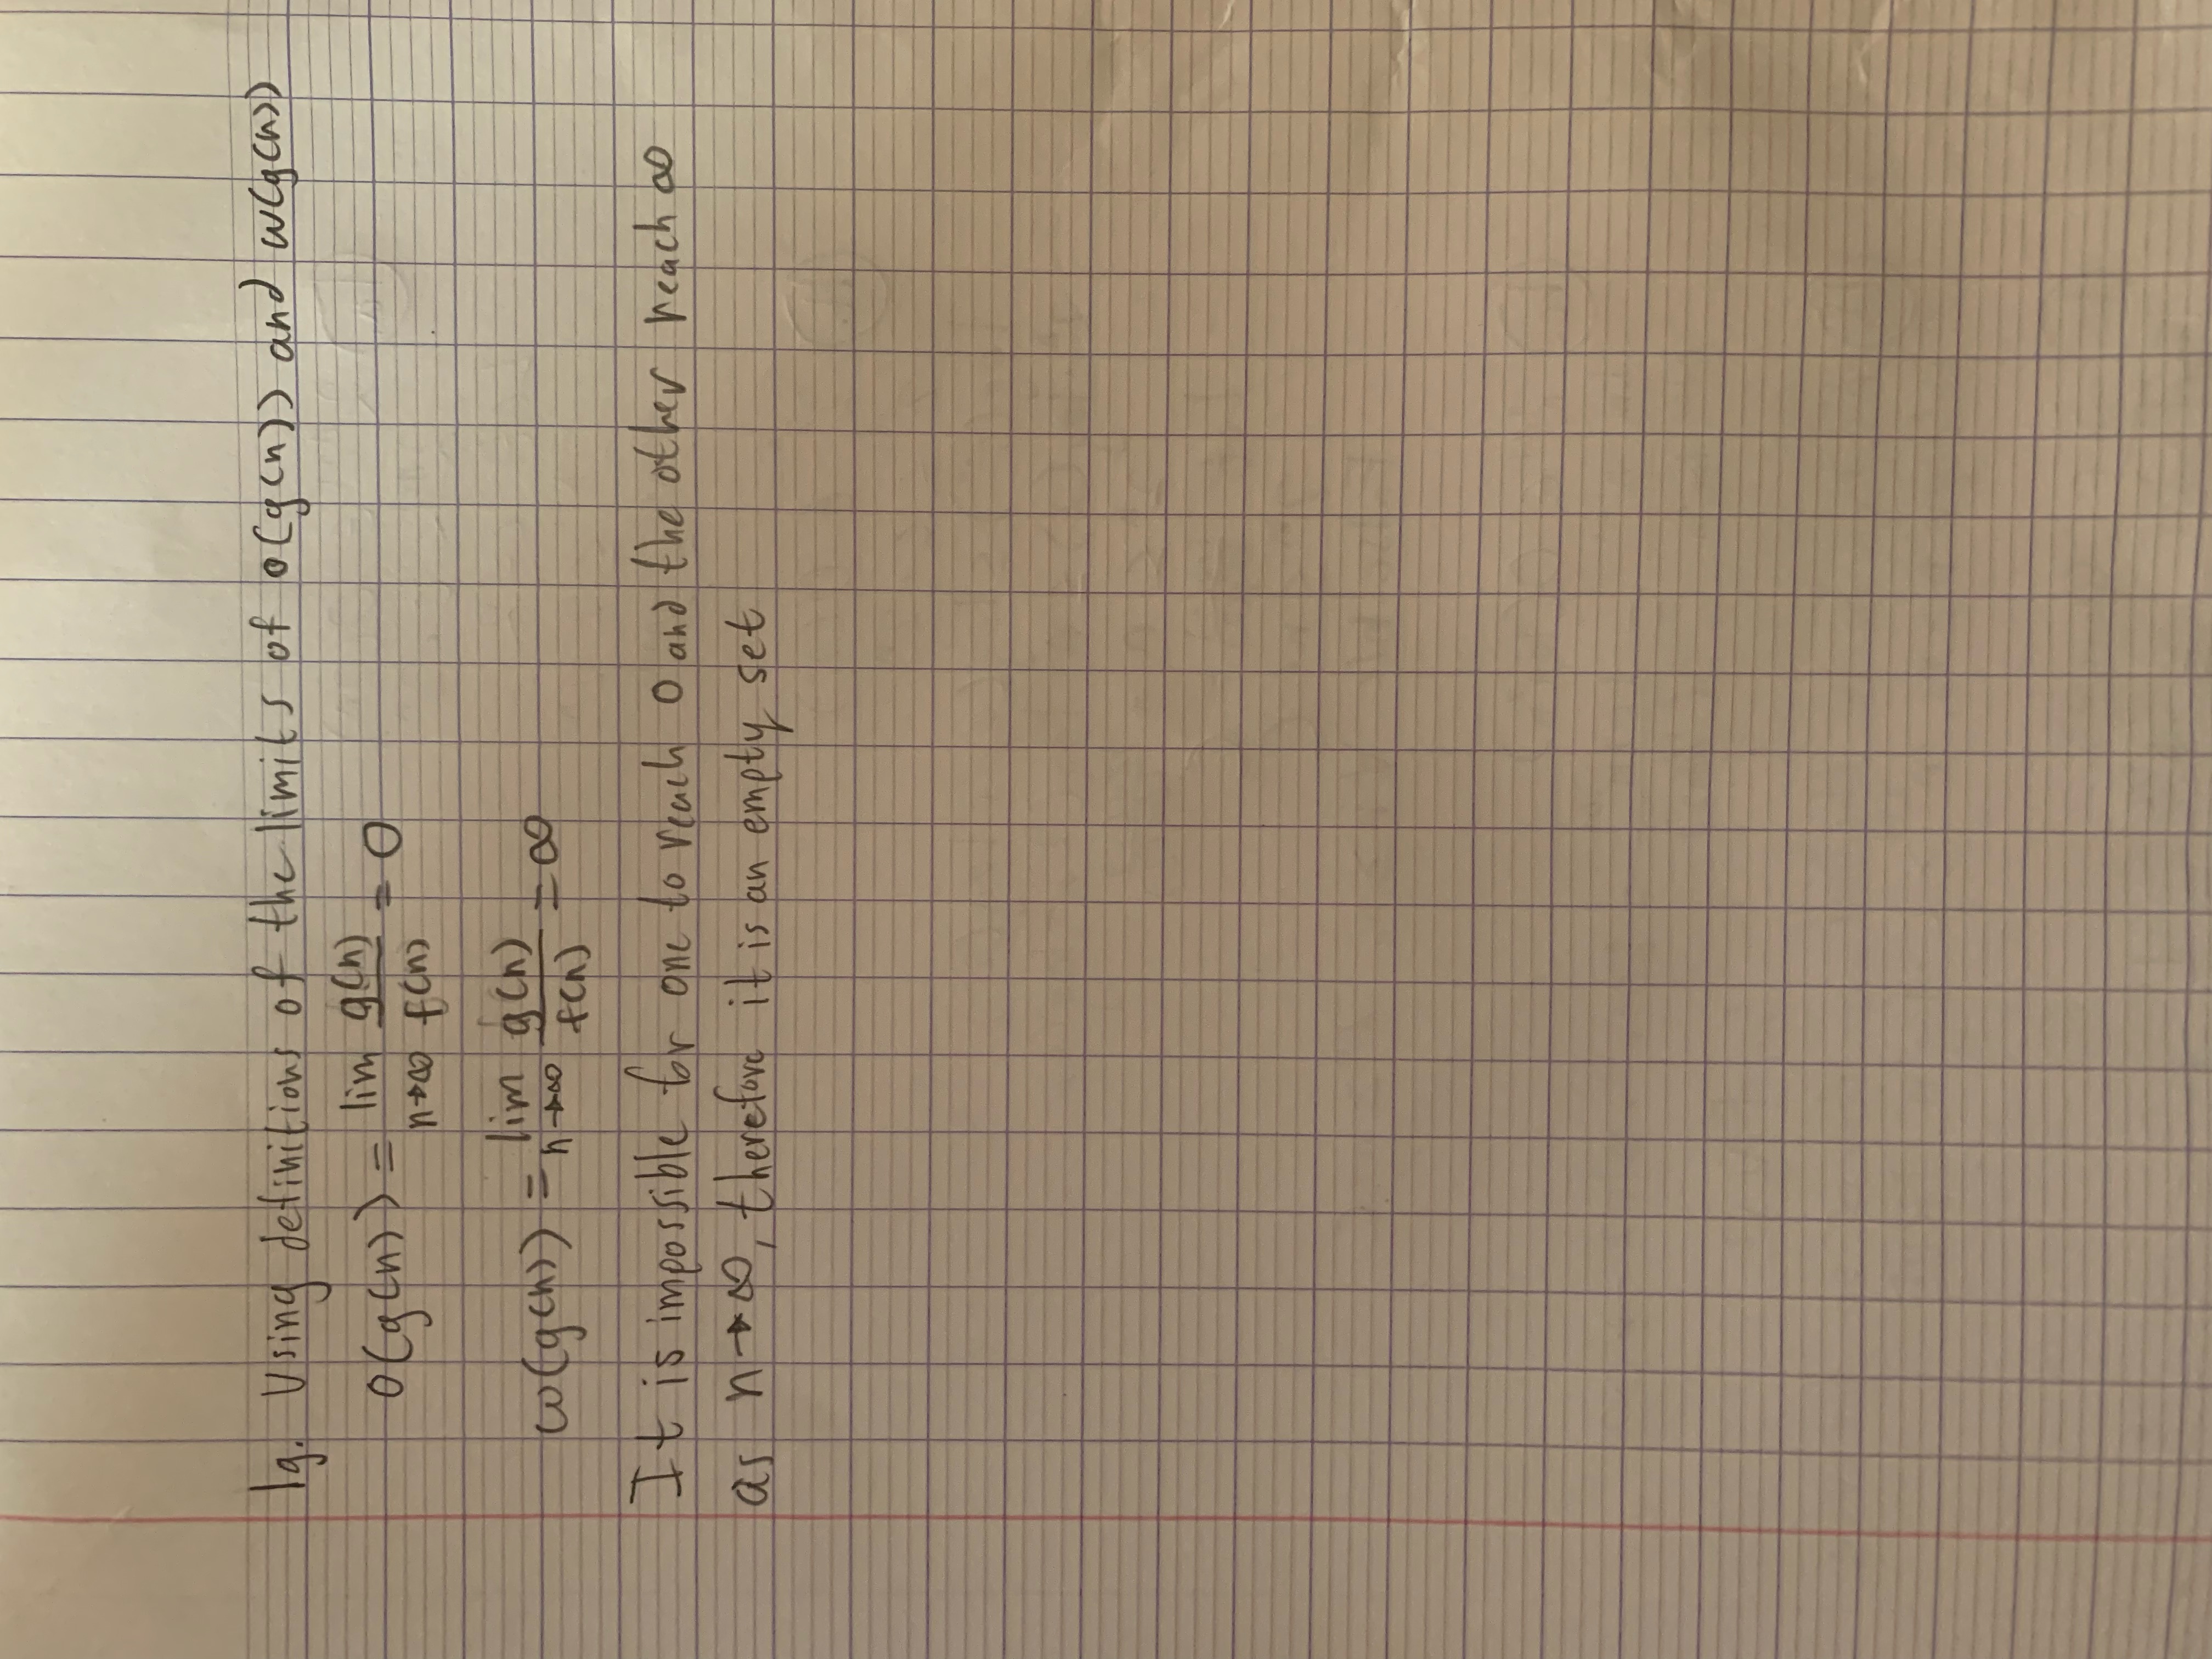 1g. Using definitions of the limits of o(g(n)) and ω(g(n))
o(g(n)) = lim n→∞ g(n)/f(n) = 0
ω(g(n)) = lim n→∞ g(n)/f(n) = ∞
It is impossible for one to reach 0 and the other reach ∞
as n→∞, therefore it is an empty set